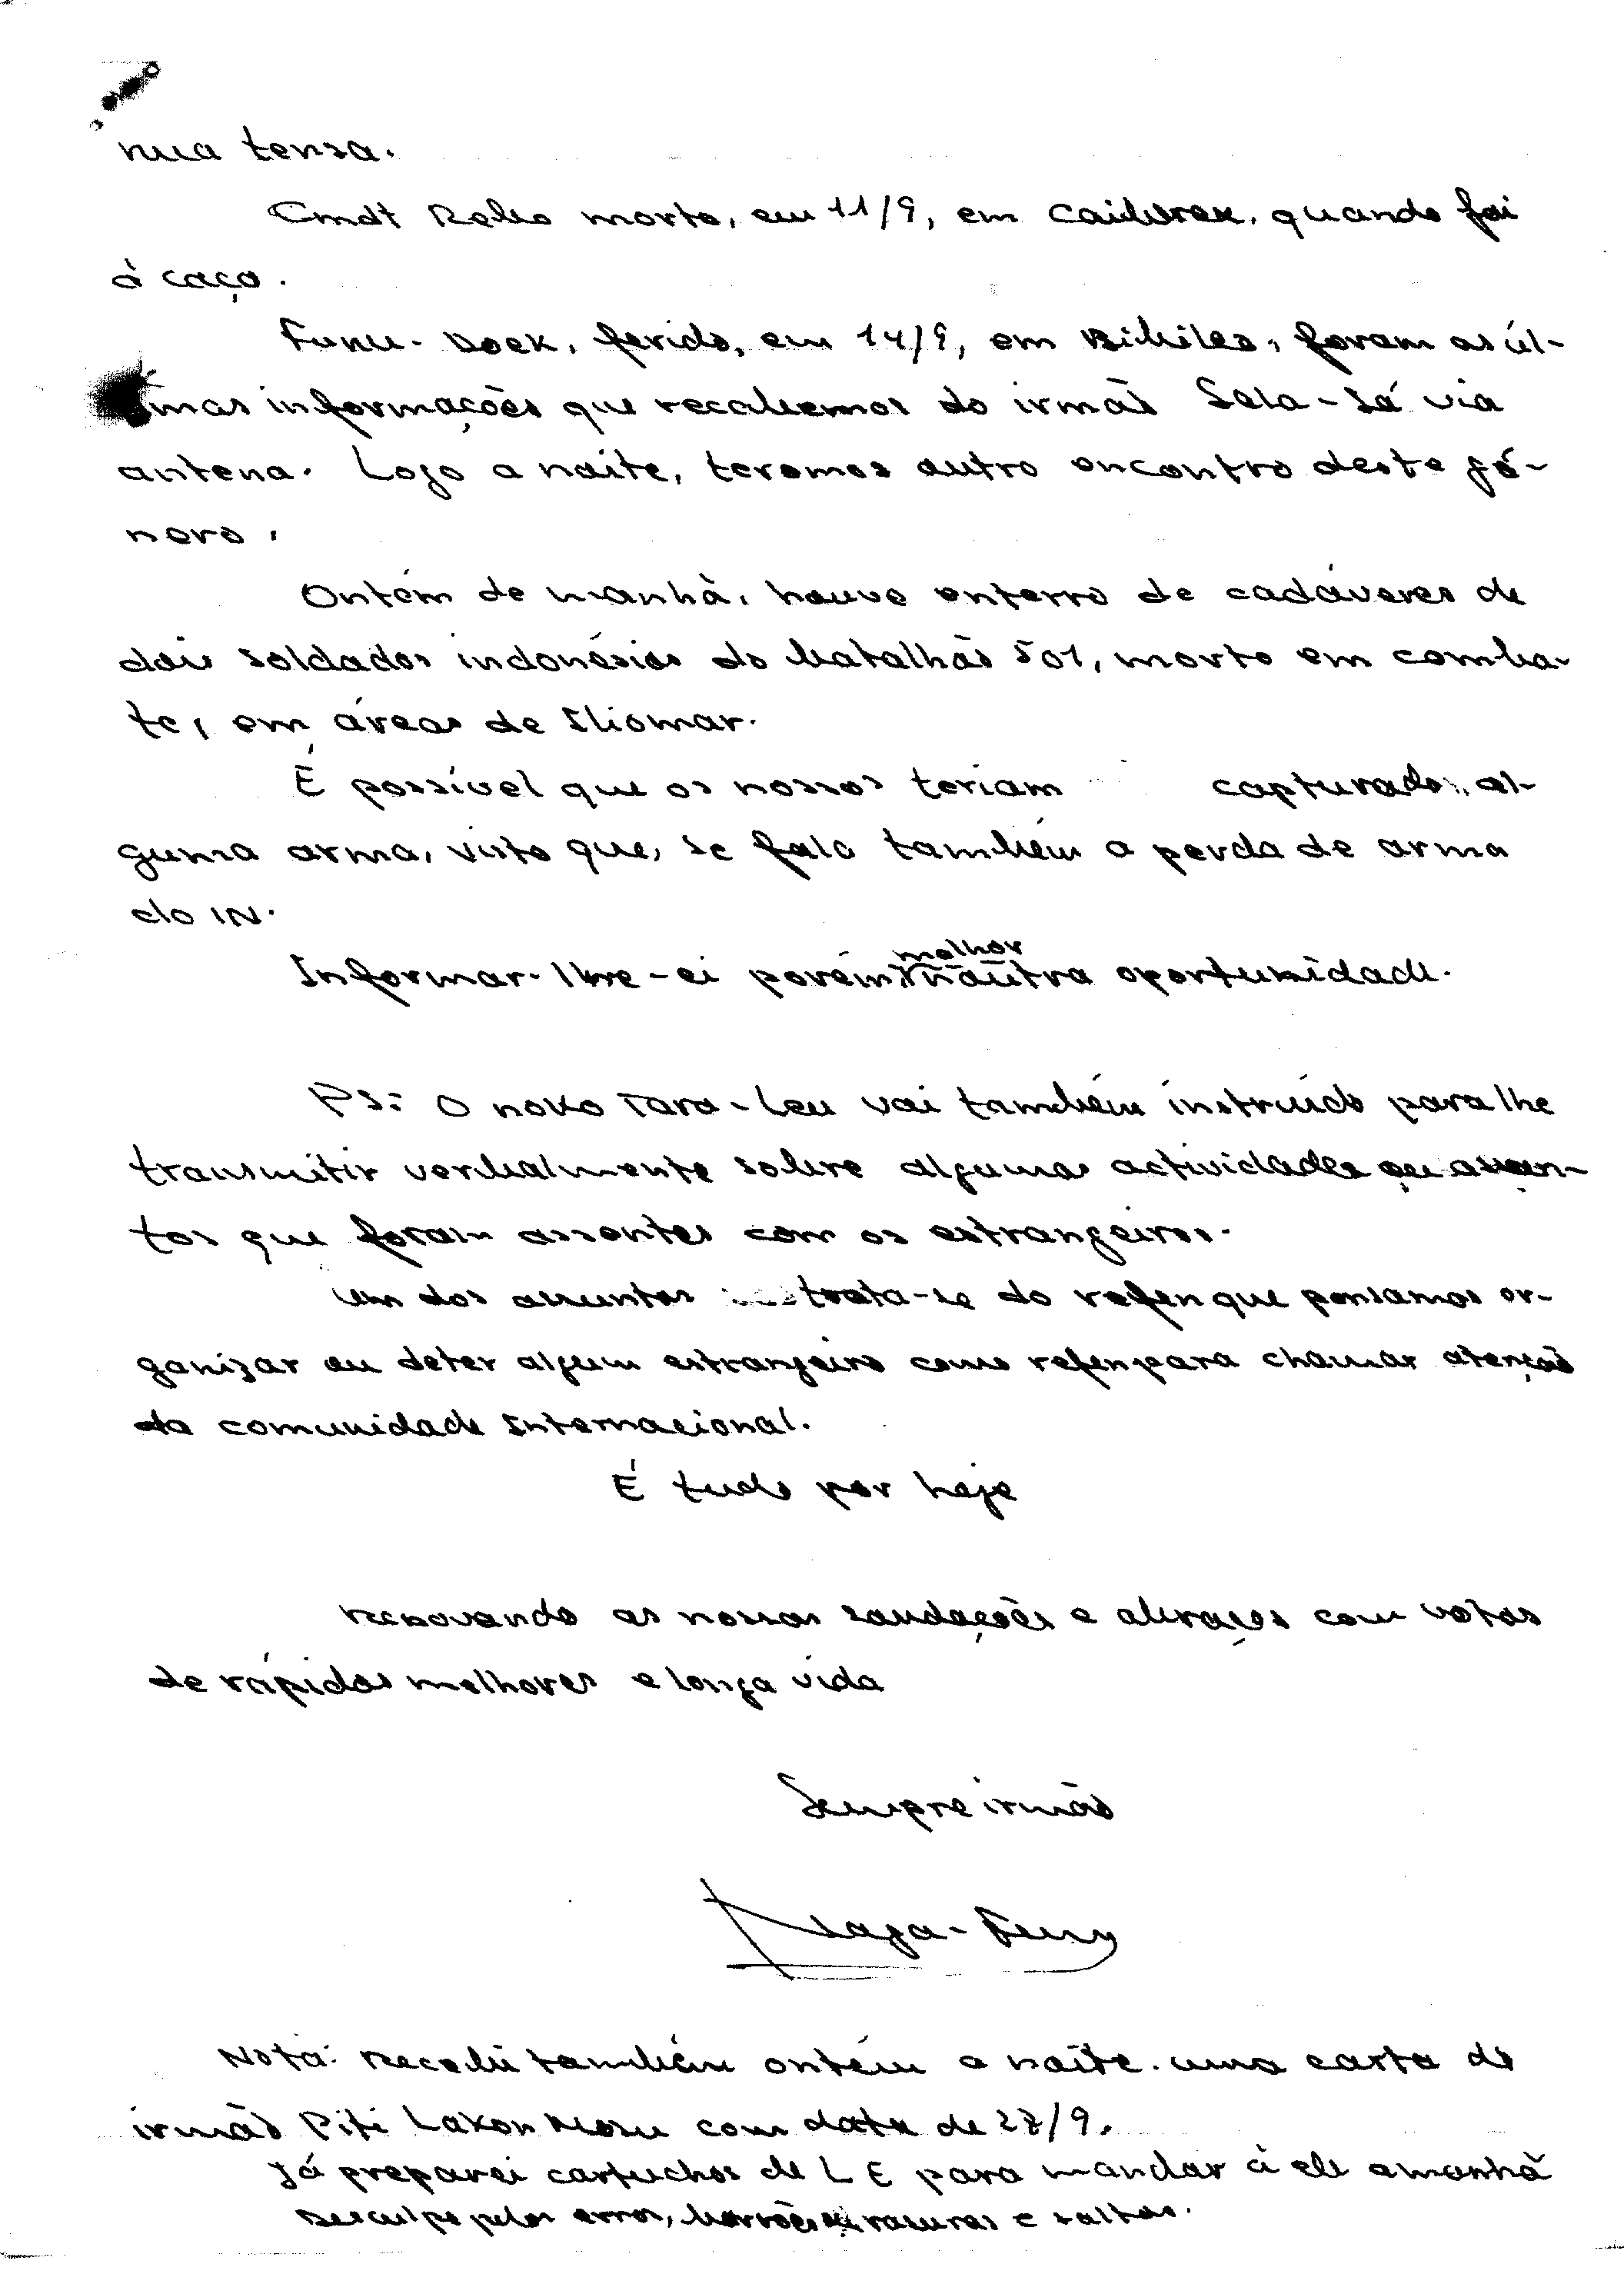 nua tensa.
Cmdt morto, em 11/9, em quando foi
à caça.
Funu-Doek, ferido, em 14/9, em foram as úl-
mas informações que recebemos do irmão Sela-Sá via
antena. Logo a noite, teremos outro encontro deste gé-
nero.
Ontém de manhã, houve enterro de cadáveres de
dois soldados indonésios do batalhão 501, morto em comba-
te, em áreas de Iliomar.
É possível que os nossos teriam capturado, al-
guma arma, visto que, se fala também a perda de arma
do IN.
Informar-lhe-ei porém melhor nautra oportunidade.
PS: O novo Tara-Leu vai também instruído para lhe
transmitir verbalmente sobre algumas actividades ou assun-
tos que foram assentes com os estrangeiros.
Um dos assuntos trata-se do refen que pensamos or-
ganizar ou deter algum estrangeiro como refen para chamar atenção
da comunidade Internacional.
É tudo por hoje
renovando as nossas saudações e abraços com votos
de rápidas melhores e longa vida
Sempre irmão
Nota: Recebi também ontém a noite uma carta do
irmão Piti Lakon com data de 27/9.
Já preparei cartuchos de LE para mandar à ele amanhã
Desculpe pelos erros, borrões rasuras e saltos.